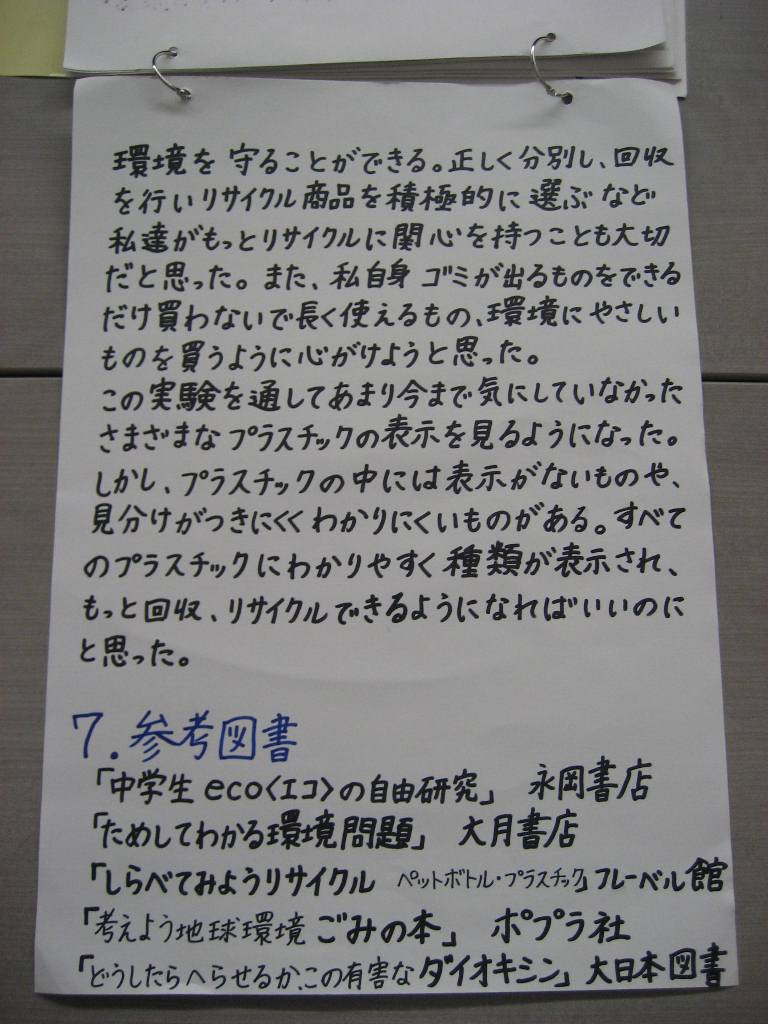 環境を守ることができる。正しく分別し、回収
を行いリサイクル商品を積極的に選ぶなど
私達がもっとリサイクルに関心を持つことも大切
だと思った。また、私自身ゴミが出るものをできる
だけ買わないで長く使えるもの、環境にやさしい
ものを買うように心がけようと思った。
この実験を通してあまり今まで気にしていなかった
さまざまなプラスチックの表示を見るようになった。
しかし、プラスチックの中には表示がないものや、
見分けがつきにくくわかりにくいものがある。すべて
のプラスチックにわかりやすく種類が表示され、
もっと回収、リサイクルできるようになればいいのに
と思った。
7.参考図書
「中学生eco〈エコ〉の自由研究」 永岡書店
「ためしてわかる環境問題」 大月書店
「しらべてみようリサイクル ペットボトル・プラスチック」フレーベル館
「考えよう地球環境 ごみの本」 ポプラ社
「どうしたらへらせるか、この有害なダイオキシン」大日本図書